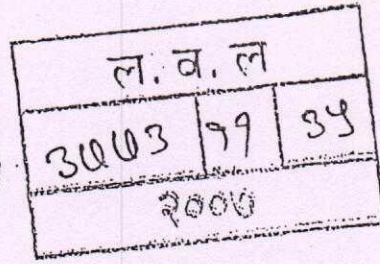 ल. व. ल
३७७३ ११ ३५
२००७